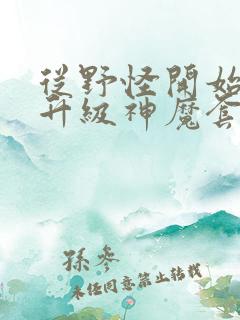 從野怪開始
升級神魔套
孫參
未任同意禁止转载